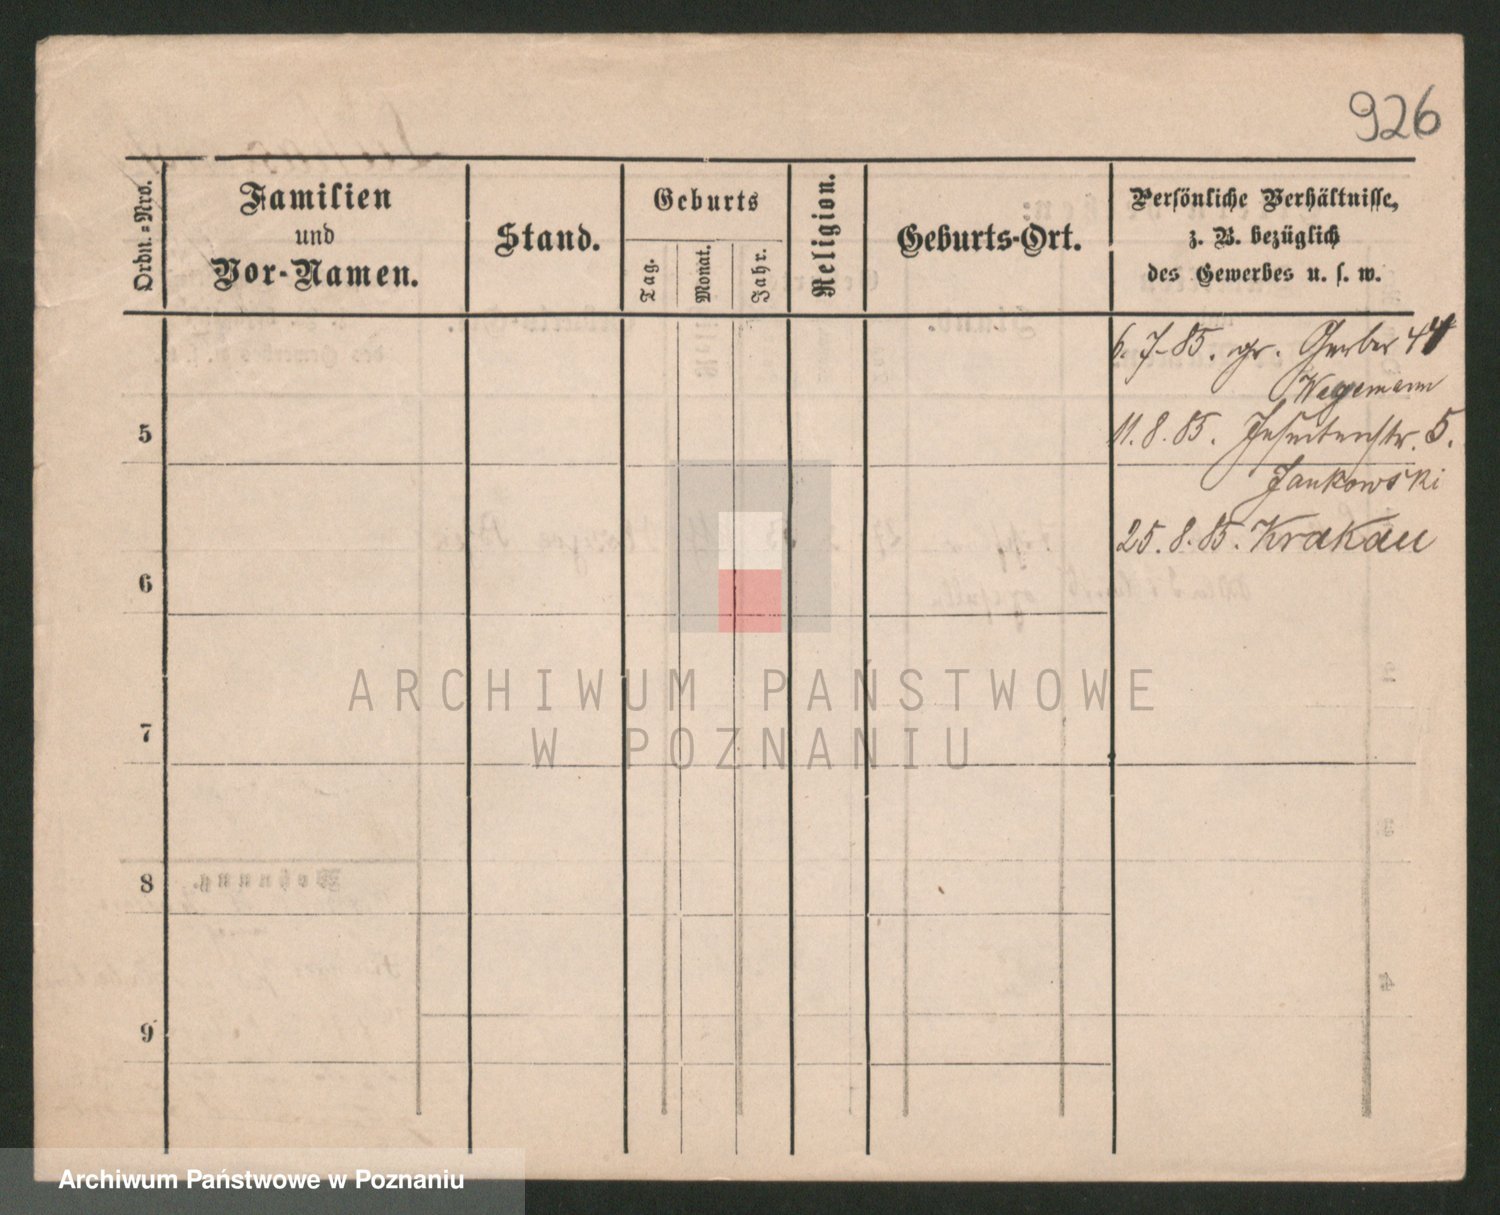 926
Ordn.-Nro.
Familien
und
Vor-Namen.
Stand.
Geburts
Tag.
Monat.
Jahr.
Religion.
Geburts-Ort.
Persönliche Verhältnisse,
z. B. bezüglich
des Gewerbes u. s. w.
6. 7. 85. gr. Gerber 44
Wegemann
5
11. 8. 85. Jesuitenstr. 5.
Jankowski
25. 8. 85. Krakau
6
7
8
9
ARCHIWUM PAŃSTWOWE
W POZNANIU
Archiwum Państwowe w Poznaniu